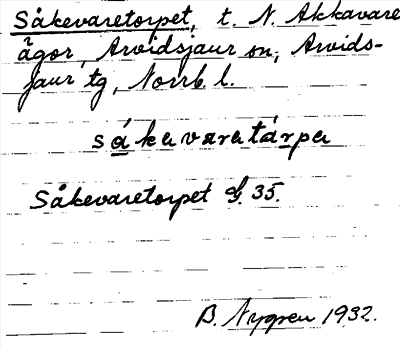 Såkevaretorpet, t. N. Akkavare
ägor, Arvidsjaur sn, Arvids-
jaur tg, Norrb. l.
såkavaratárpa
Såkevaretorpet G. 35.
B. Nygren 1932.